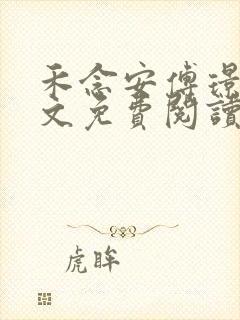 禾念安傅璟
文免費閱讀
虎眸